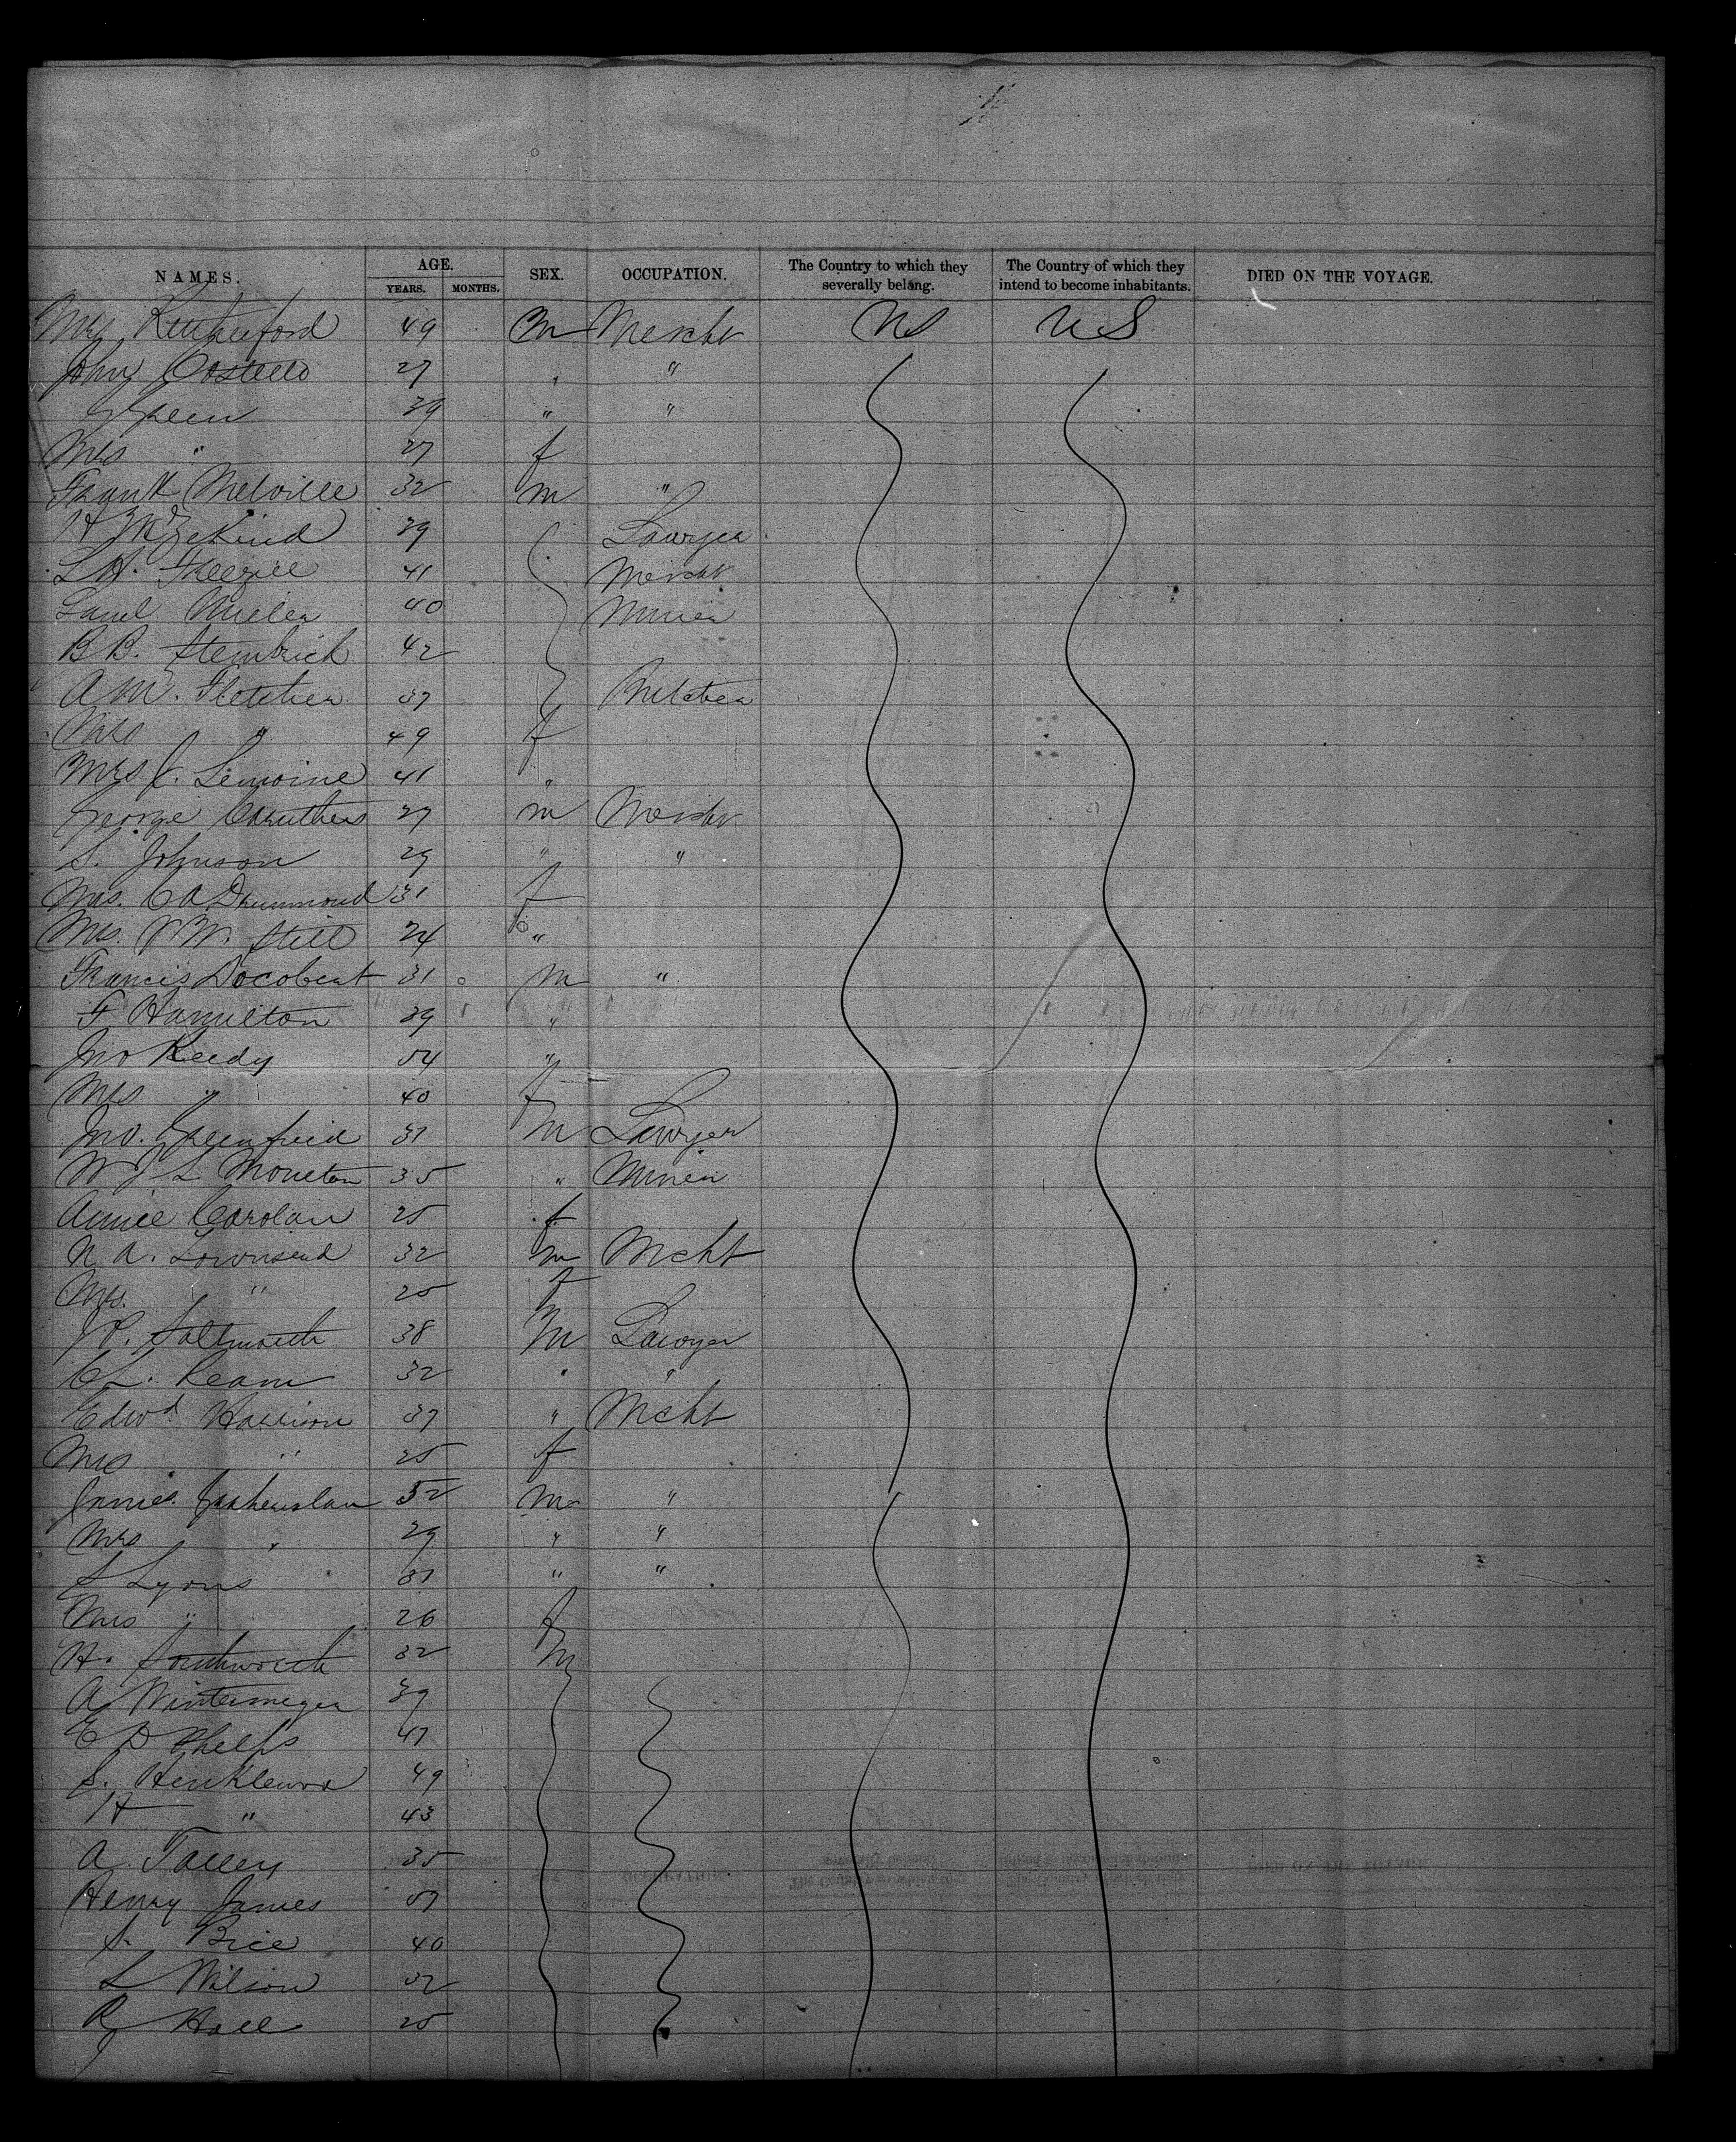 NAMES. AGE. YEARS. MONTHS. SEX. OCCUPATION. The Country to which they severally belong. The Country of which they intend to become inhabitants. DIED ON THE VOYAGE.
Mrs Rutherford 49 m Mercht US US
John Costello 27 " "
Green 39 " "
Mrs " 27 f
Frank Melville 32 m "
H 39 Lawyer
L H. 41 Mercht
Saml Miller 40 Miner
B B. 42
A M. Fletcher 37 Butcher
Mrs " 49 f
Mrs J. Lemoine 41 "
George Caruthers 27 m Mercht
S. Johnson 29 " "
Mrs. C A Drummond 31 f
Mrs. W. Still 24 "
Francis Docobert 31 m "
F Hamilton 39 "
Jno Reedy 54 "
Mrs " 40 f
Jno. Greenfield 37 m Lawyer
W J L Moulton 35 " Miner
Annie Carolan 25 f
N A. Townsend 32 m Mcht
Mrs. " 25 f
J P. 38 M Lawyer
C L. Ream 32 " "
Edwd Harrison 37 " Mcht
Mrs " 25 f
James 52 m "
Mrs " 29 " "
S Lyons 37 " "
Mrs " 26 f
H. Southworth 32 m
A Wintermeyer 39
E D Phelps 47
S. 49
H " 43
A. Talley 35
Henry James 57
S. Bice 40
L Wilson 32
R Hall 25